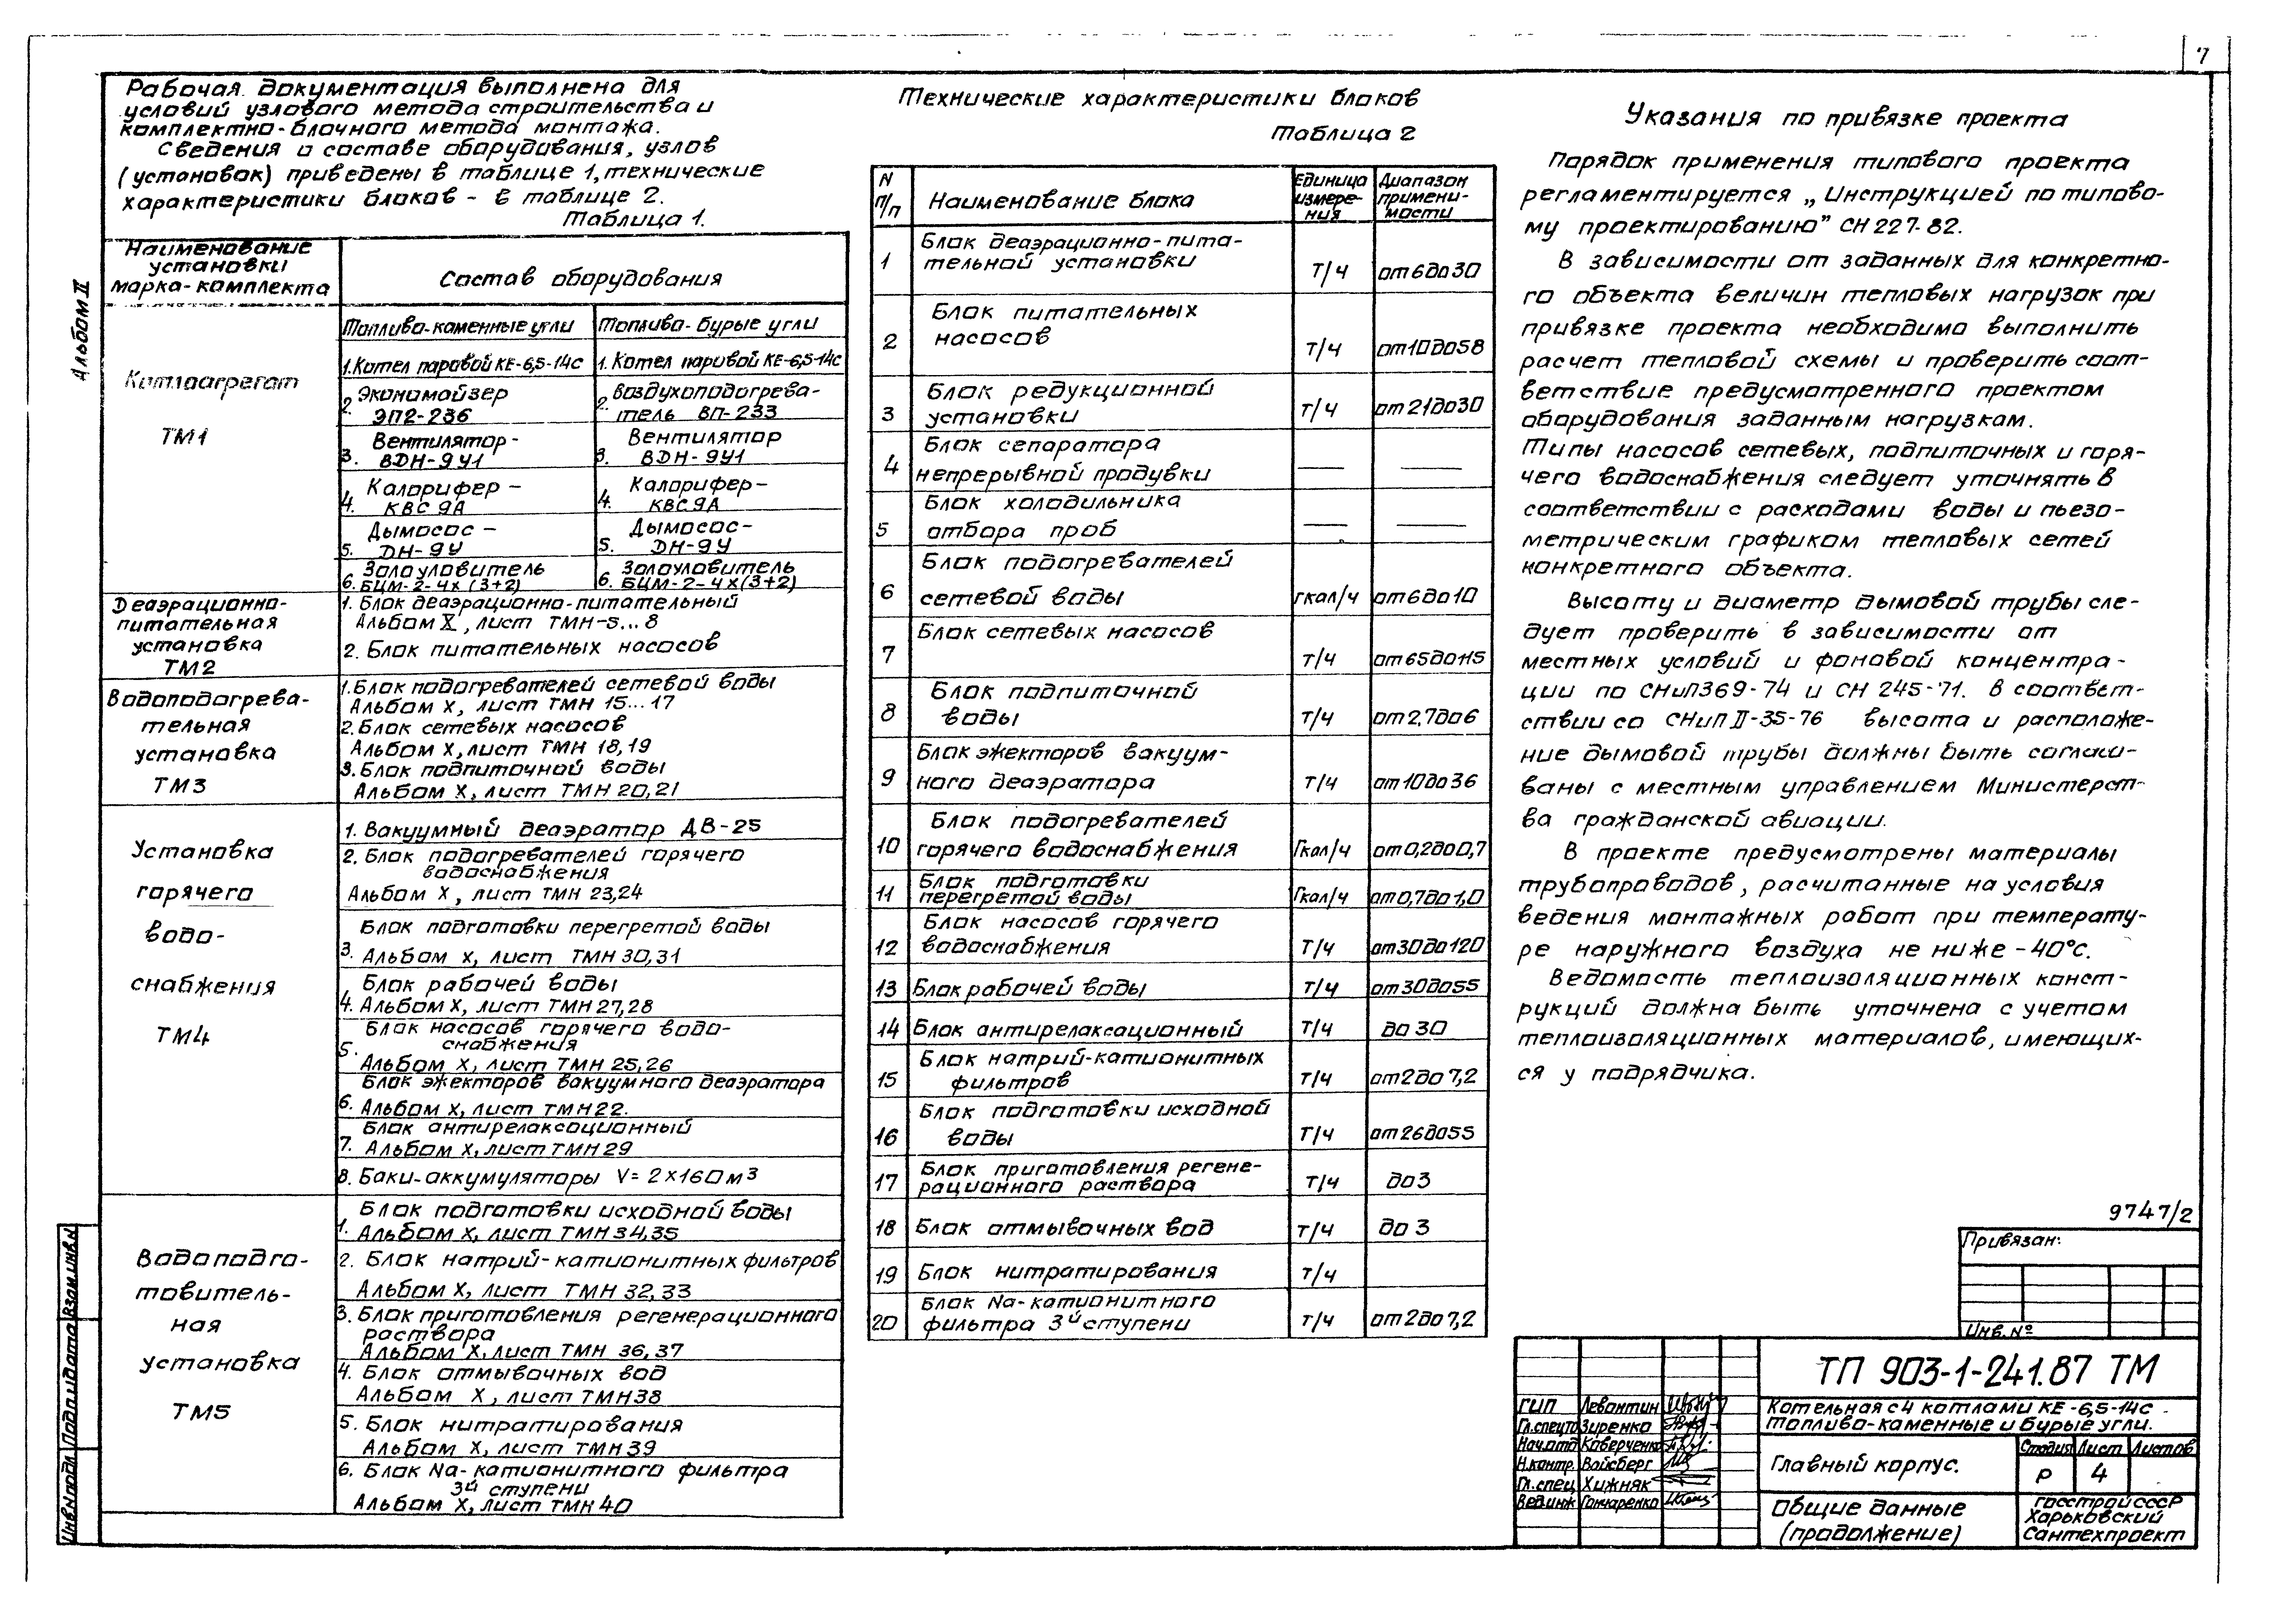 7
Альбом II
Рабочая документация выполнена для
условий узлового метода строительства и
комплектно-блочного метода монтажа.
Сведения о составе оборудивания, узлов
(установок) приведены в таблице 1, технические
характеристики блоков - в таблице 2.
Таблица 1.
Наименование
установки
марка-комплекта
Состав оборудования
Котлоагрегат
ТМ1
Топливо-каменные угли
Топливо-бурые угли
1. Котел паровой КЕ-6,5-14с
1. Котел паровой КЕ-6,5-14с
2. Экономайзер
ЭП2-236
2. Воздухоподогрева-
тель ВП-233
3. Вентилятор-
ВДН-9У1
3. Вентилятор
ВДН-9У1
4. Калорифер -
КВС 9А
4. Калорифер-
КВС 9А
5. Дымосос -
ДН-9У
5. Дымосос-
ДН-9У
6. Золоуловитель
БЦМ-2-4х(3+2)
6. Золоуловитель
БЦМ-2-4х(3+2)
Деаэрационно-
питательная
установка
ТМ2
1. Блок деаэрационно-питательный
Альбом X, лист ТМН-5...8
2. Блок питательных насосов
Водоподогрева-
тельная
установка
ТМ3
1. Блок подогревателей сетевой воды
Альбом X, лист ТМН 15...17
2. Блок сетевых насосов
Альбом X, лист ТМН 18,19
3. Блок подпиточной воды
Альбом X, лист ТМН 20,21
Установка
горячего
водо-
снабжения
ТМ4
1. Вакуумный деаэратор ДВ-25
2. Блок подогревателей горячего
водоснабжения
Альбом X, лист ТМН 23,24
Блок подготовки перегретой воды
3. Альбом X, лист ТМН 30,31
Блок рабочей воды
4. Альбом X, лист ТМН 27,28
Блок насосов горячего водо-
снабжения
5.
Альбом X, лист ТМН 25,26
Блок эжекторов вакуумного деаэратора
6. Альбом X, лист ТМН 22.
Блок антирелаксационный
7. Альбом X, лист ТМН 29
8. Баки-аккумуляторы V= 2×160м³
Водоподго-
товитель-
ная
установка
ТМ5
Блок подготовки исходной воды
1. Альбом X, лист ТМН 34,35
2. Блок натрий-катионитных фильтров
Альбом X, лист ТМН 32,33
3. Блок приготовления регенерационного
раствора
Альбом X, лист ТМН 36,37
4. Блок отмывочных вод
Альбом X, лист ТМН38
5. Блок нитратирования
Альбом X, лист ТМН 39
6. Блок Na-катионитного фильтра
3й ступени
Альбом X, лист ТМН 40
Технические характеристики блоков
Таблица 2
N п/п
Наименование блока
Единица измере-ния
Диапазон примени-мости
1 Блок деаэрационно-пита-
тельной установки т/ч от 6 до 30
2 Блок питательных
насосов т/ч от 10 до 58
3 Блок редукционной
установки т/ч от 21 до 30
4 Блок сепаратора
непрерывной продувки — —
5 Блок холодильника
отбора проб — —
6 Блок подогревателей
сетевой воды гкал/ч от 6 до 10
7 Блок сетевых насосов
т/ч от 65 до 115
8 Блок подпиточной
воды т/ч от 2,7 до 6
9 Блок эжекторов вакуум-
ного деаэратора т/ч от 10 до 36
10 Блок подогревателей
горячего водоснабжения Гкал/ч от 0,2 до 0,7
11 Блок подготовки
перегретой воды Гкал/ч от 0,7 до 1,0
12 Блок насосов горячего
водоснабжения т/ч от 30 до 120
13 Блок рабочей воды т/ч от 30 до 55
14 Блок антирелаксационный т/ч до 30
15 Блок натрий-катионитных
фильтров т/ч от 2 до 7,2
16 Блок подготовки исходной
воды т/ч от 26 до 55
17 Блок приготовления регене-
рационного раствора т/ч до 3
18 Блок отмывочных вод т/ч до 3
19 Блок нитратирования т/ч
20 Блок Na-катионитного
фильтра 3й ступени т/ч от 2 до 7,2
Указания по привязке проекта
Порядок применения типового проекта
регламентируется „Инструкцией по типово-
му проектированию” СН 227-82.
В зависимости от заданных для конкретно-
го объекта величин тепловых нагрузок при
привязке проекта необходимо выполнить
расчет тепловой схемы и проверить соот-
ветствие предусмотренного проектом
оборудования заданным нагрузкам.
Типы насосов сетевых, подпиточных и горя-
чего водоснабжения следует уточнять в
соответствии с расходами воды и пьезо-
метрическим графиком тепловых сетей
конкретного объекта.
Высоту и диаметр дымовой трубы сле-
дует проверить в зависимости от
местных условий и фоновой концентра-
ции по СНиП369-74 и СН 245-71. В соответ-
ствии со СНиП II-35-76 высота и расположе-
ние дымовой трубы должны быть согласо-
ваны с местным управлением Министерст-
ва гражданской авиации.
В проекте предусмотрены материалы
трубопроводов, расчитанные на условия
ведения монтажных работ при температу-
ре наружного воздуха не ниже -40°с.
Ведомость теплоизоляционных конст-
рукций должна быть уточнена с учетом
теплоизоляционных материалов, имеющих-
ся у подрядчика.
9747/2
Привязан:
Инв. №
ТП 903-1-241.87 ТМ
Котельная с 4 котлами КЕ-6,5-14с
Топливо-каменные и бурые угли.
ГИП Левантин
Гл.спецто Зиренко
Нач.отд Коверченко
Н.контр. Войсберг
Гл.спец Хижняк
Вед.инж Гончаренко
Главный корпус.
Стадия Лист Листов
Р 4
Общие данные
(продолжение)
Госстрой СССР
Харьковский
Сантехпроект
Инв.N подл Подп и дата Взам.инв.N